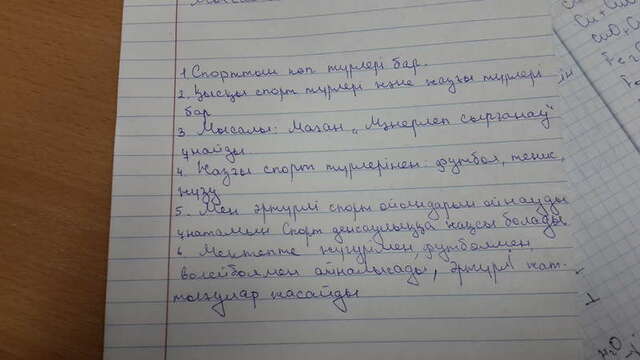 1 Спорттың көп түрлері бар.
2. Қысқы спорт түрлері және жазғы түрлері
бар
3 Мысалы: Маған „Мәнерлеп сырғанау"
ұнайды
4. Жазғы спорт түрлерінен: футбол, теннис,
жүзу
5. Мен әртүрлі спорт ойындарын ойнауды
ұнатамын Спорт денсаулыққа жақсы болады
6. Мектепте жүгірумен, футболмен,
волейболмен айналысады, әртүрлі жат-
тығулар жасайды